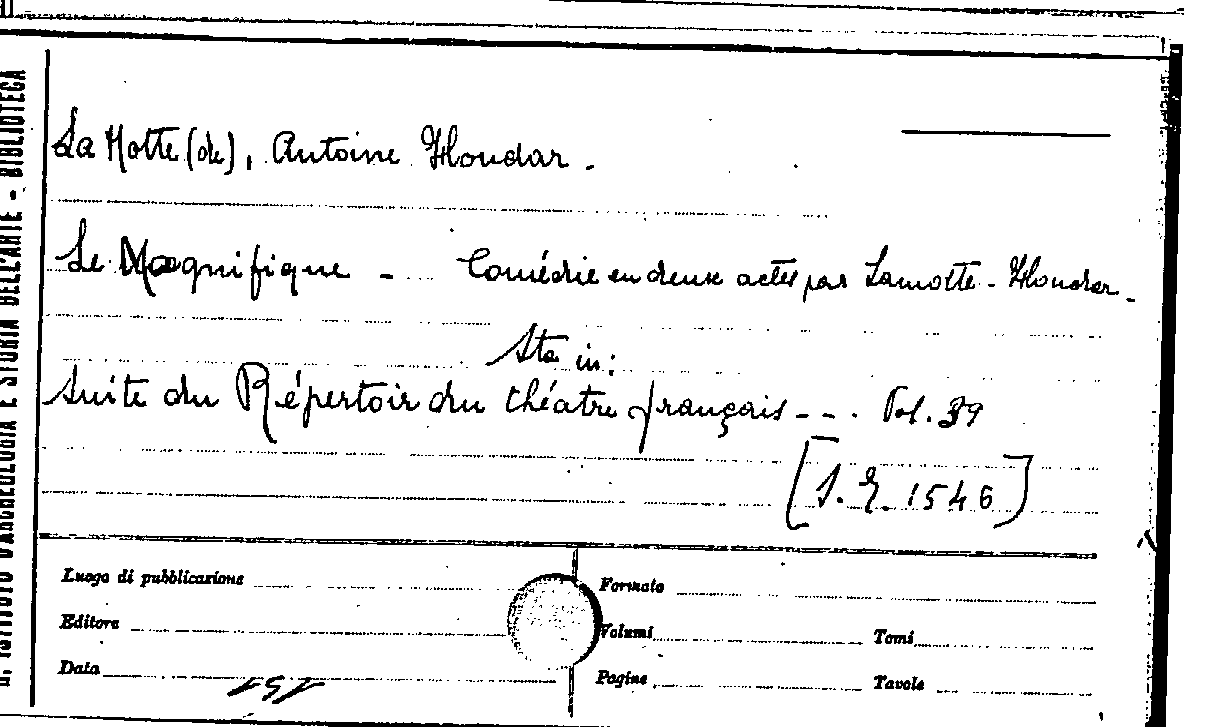 La Motte (de), Antoine Houdar.
Le Magnifique - Comédie en deux actes par Lamotte-Houdar.
Sta in:
Suite du Répertoir du théatre français --. Vol. 39
[S.E. 1546]
Luogo di pubblicazione
Formato
Editore
Volumi
Tomi
Data
Pagine
Tavole
ISTITUTO D'ARCHEOLOGIA E STORIA DELL'ARTE - BIBLIOTECA